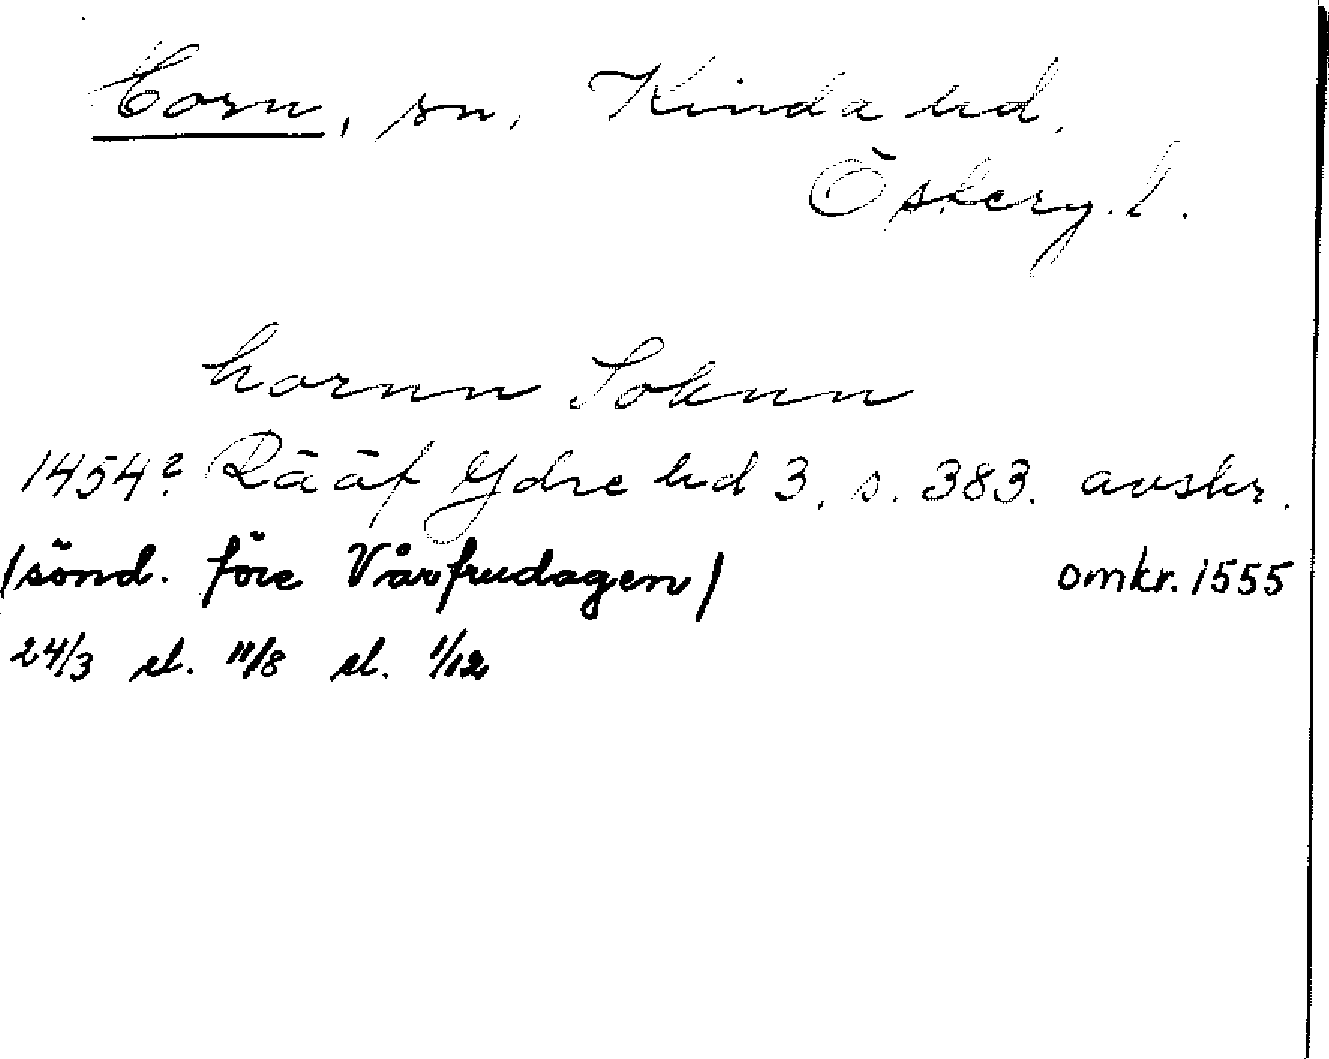 Horn, sn, Kinda hd,
Österg. l.
hornn Soknn
1454? Rääf Ydre hd 3, s. 383. avskr.
(sönd. före Vårfrudagen) omkr. 1555
24/3 el. 11/8 el. 1/12